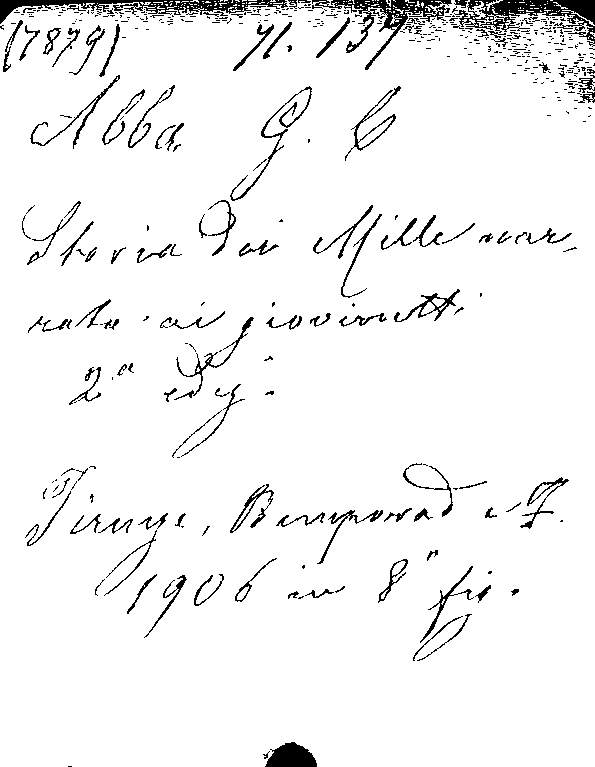 (7879) 71. 137
Abba G. C
Storia dei Mille nar-
rata ai giovinetti
2a ediz.
Firenze, Bemporad e F.
1906 in 8° fig.